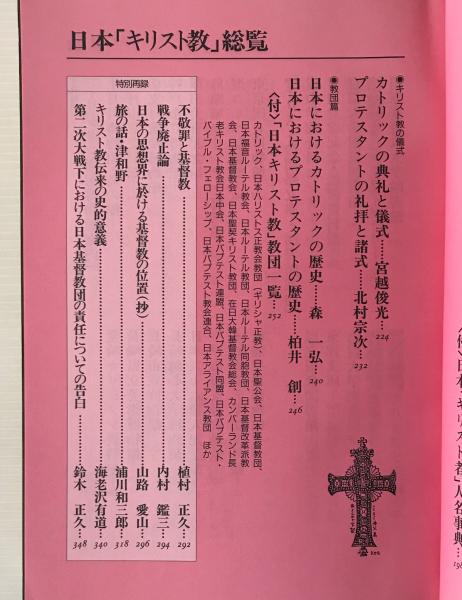 日本「キリスト教」総覧
●キリスト教の儀式
カトリックの典礼と儀式……宮越俊光…224
プロテスタントの礼拝と諸式……北村宗次…232
●教団篇
日本におけるカトリックの歴史……森 一弘…240
日本におけるプロテスタントの歴史……柏井 創…246
〈付〉「日本キリスト教」教団一覧…252
カトリック、日本ハリストス正教会教団(ギリシャ正教)、日本聖公会、日本基督教団、
日本福音ルーテル教会、日本ルーテル教団、日本ルーテル同胞教団、日本基督改革派教
会、日本基督教会、日本聖契キリスト教団、在日大韓基督教会総会、カンバーランド長
老キリスト教会日本中会、日本バプテスト連盟、日本バプテスト同盟、日本バプテスト・
バイブル・フェローシップ、日本バプテスト教会連合、日本アライアンス教団 ほか
特別再録
不敬罪と基督教……植村 正久…292
戦争廃止論……内村 鑑三…294
日本の思想界に於ける基督教の位置(抄)……山路 愛山…296
旅の話・津和野……浦川和三郎…318
キリスト教伝来の史的意義……海老沢有道…340
第二次大戦下における日本基督教団の責任についての告白……鈴木 正久…348
〈付〉「日本キリスト教」人名事典…198